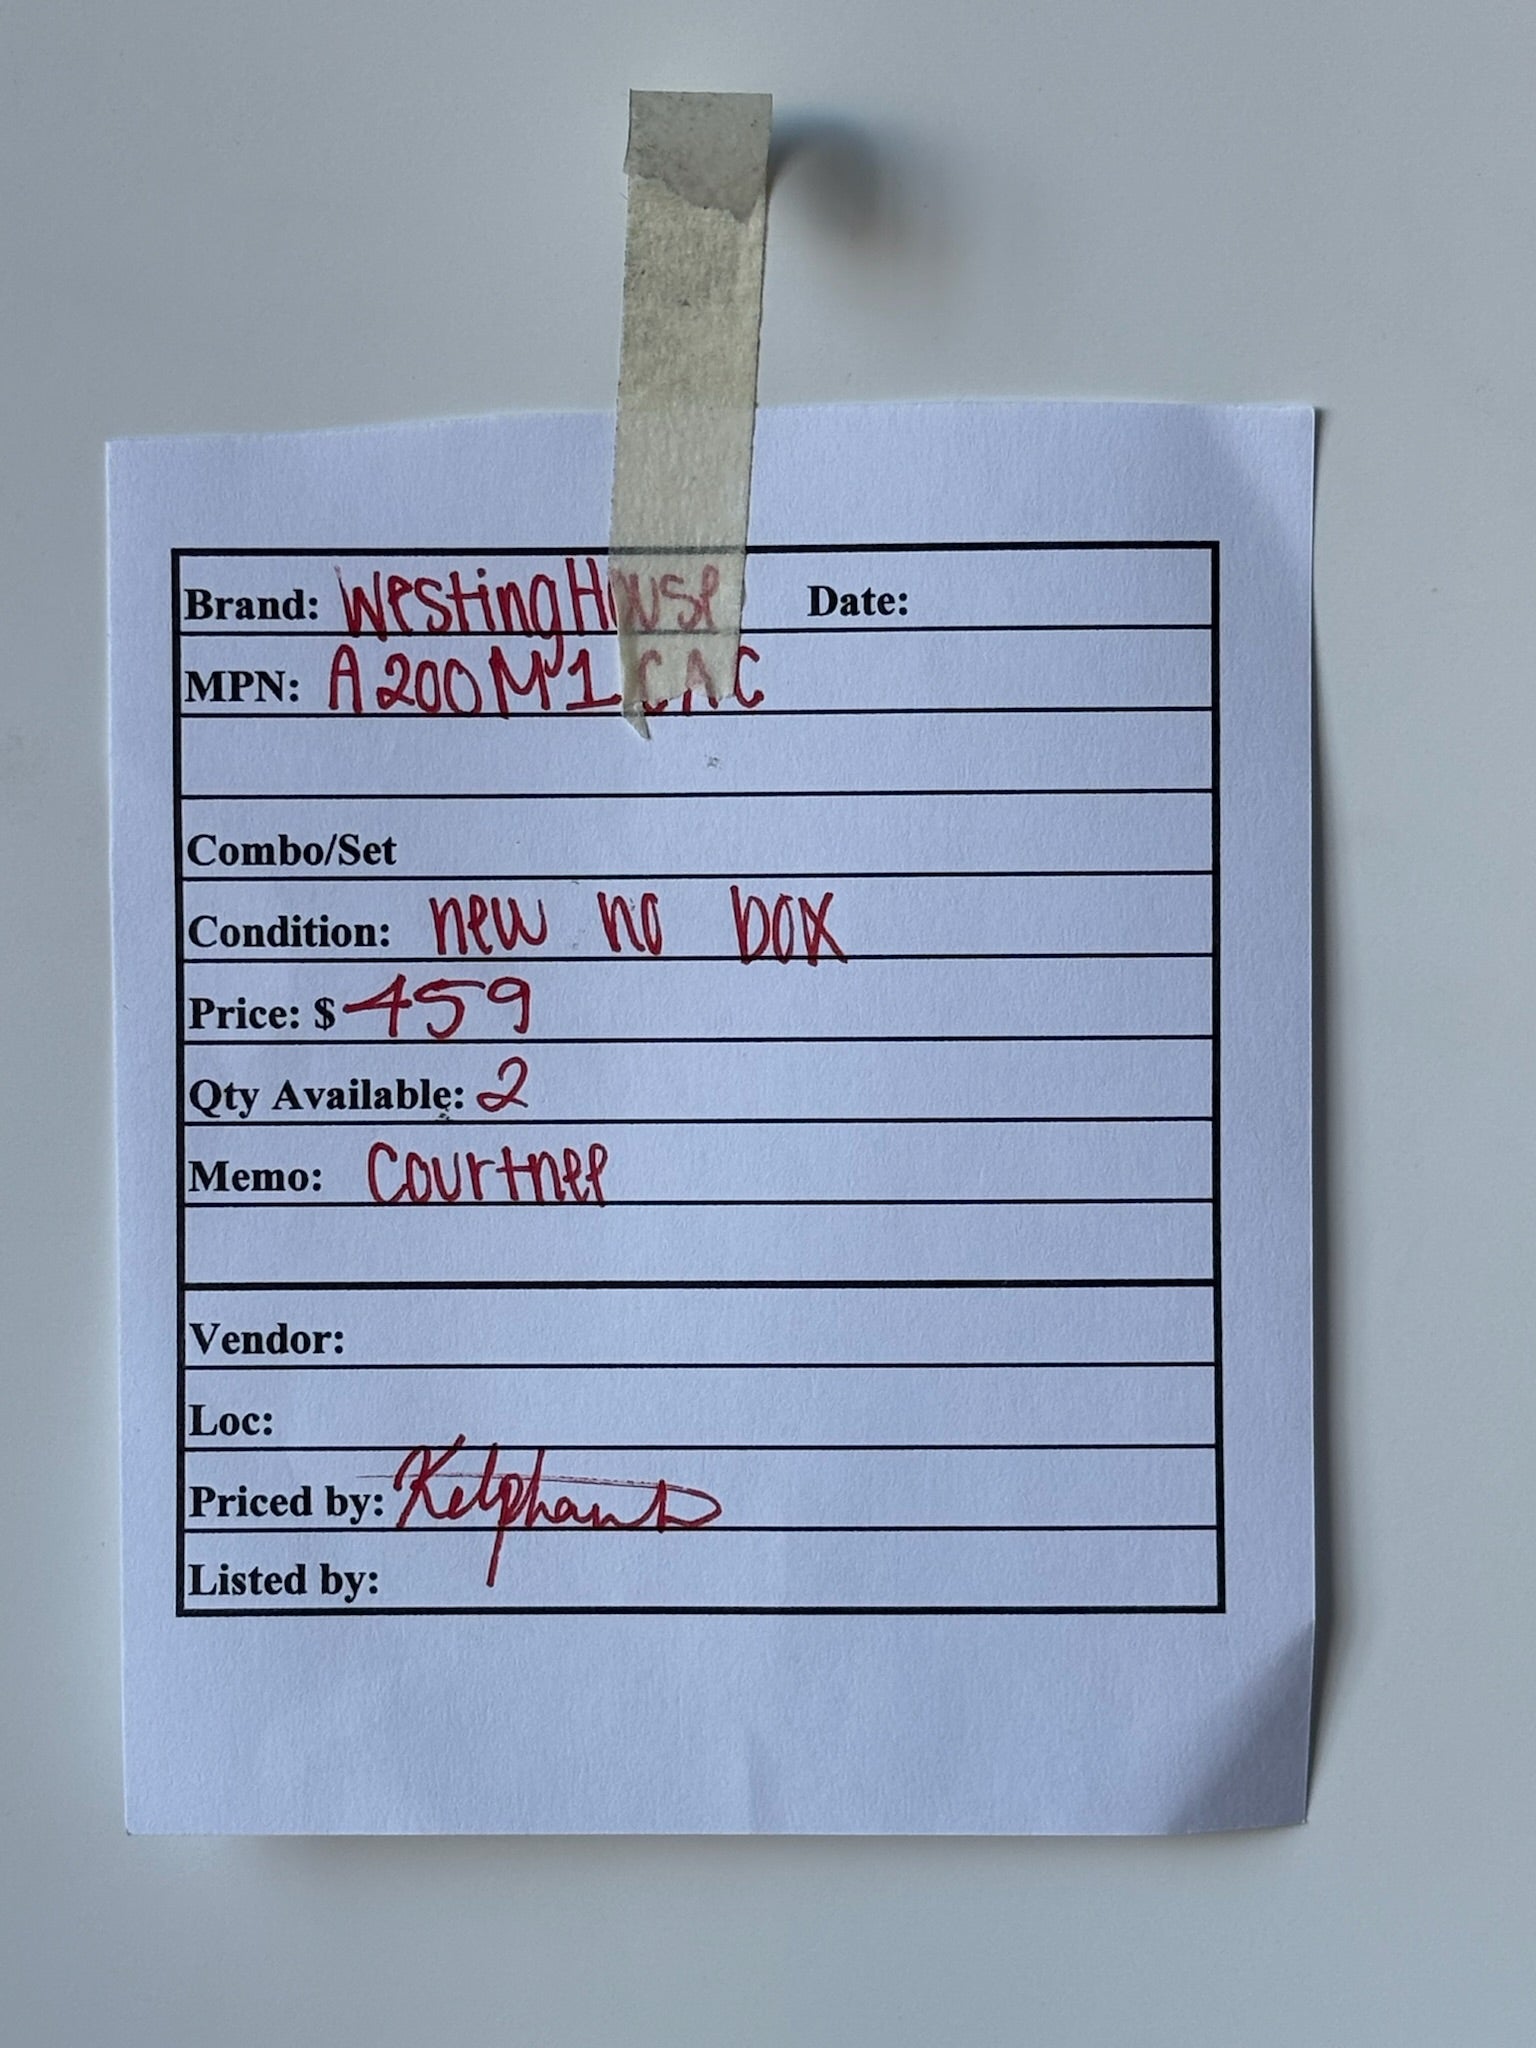 Brand: WestingHouse Date:
MPN: A200M1CAC
Combo/Set
Condition: new no box
Price: $459
Qty Available: 2
Memo: Courtnee
Vendor:
Loc:
Priced by:
Listed by: